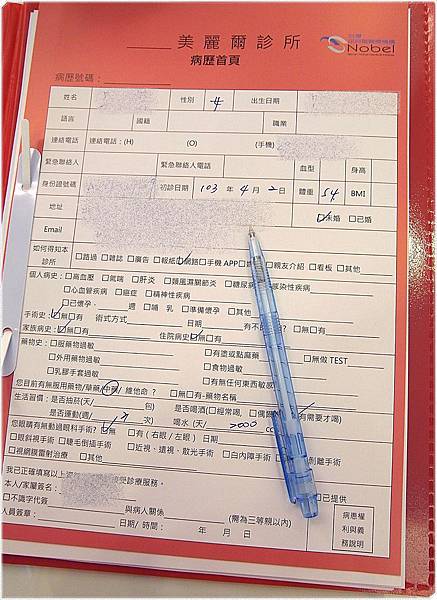 美麗爾診所
Nobel
病歷首頁
病歷號碼：
姓名 性別 女 出生日期
語言 國籍 職業
連絡電話 連絡電話：(H) (O) (手機)
緊急聯絡人 緊急聯絡人電話 血型 身高
身份證號碼 初診日期 103 年 4 月 2 日 體重 54 BMI
地址 ☑未婚 □已婚
Email
如何得知本診所 □路過 □雜誌 □廣告 □報紙 ☑網路 □手機 APP □親友介紹 □看板 □其他
個人病史：□高血壓 □氣喘 □肝炎 □類風濕關節炎 □糖尿病 感染性疾病
□心血管疾病 □癌症 □精神性疾病
□已懷孕、 週 □哺 乳 □準備懷孕 □其他
手術史：☑無□有 術式方式 日期 有不 □無□有
家族病史：☑無□有 住院病史：☑無□有
藥物史：□服藥物過敏 □有塗或點麻藥 □無做 TEST
□外用藥物過敏 □食物過敏
□乳膠手套過敏 □有無任何東西敏感
您目前有無服用藥物/草藥/中藥/ 維他命？ □無□有-藥物名稱
生活習慣：是否抽菸(天/ 包) 是否喝酒(□經常喝、□偶 有需要才喝)
是否運動(週/ 次) 喝水 (天/ 2000 cc
您眼睛有無動過眼科手術? ☑無 □有 (右眼／左眼) 日期
□眼斜視手術 □睫毛倒插手術 □近視、遠視、散光手術 □白內障手術 剝離手術
□視網膜雷射治療 □其他
我已正確填寫以上 接受診療服務。
本人/家屬簽名：
□不識字代簽 與病人關係 (需為三等親以內)
人員簽章： 日期/ 時間： 年 月 日
已提供
病患權利與義務說明